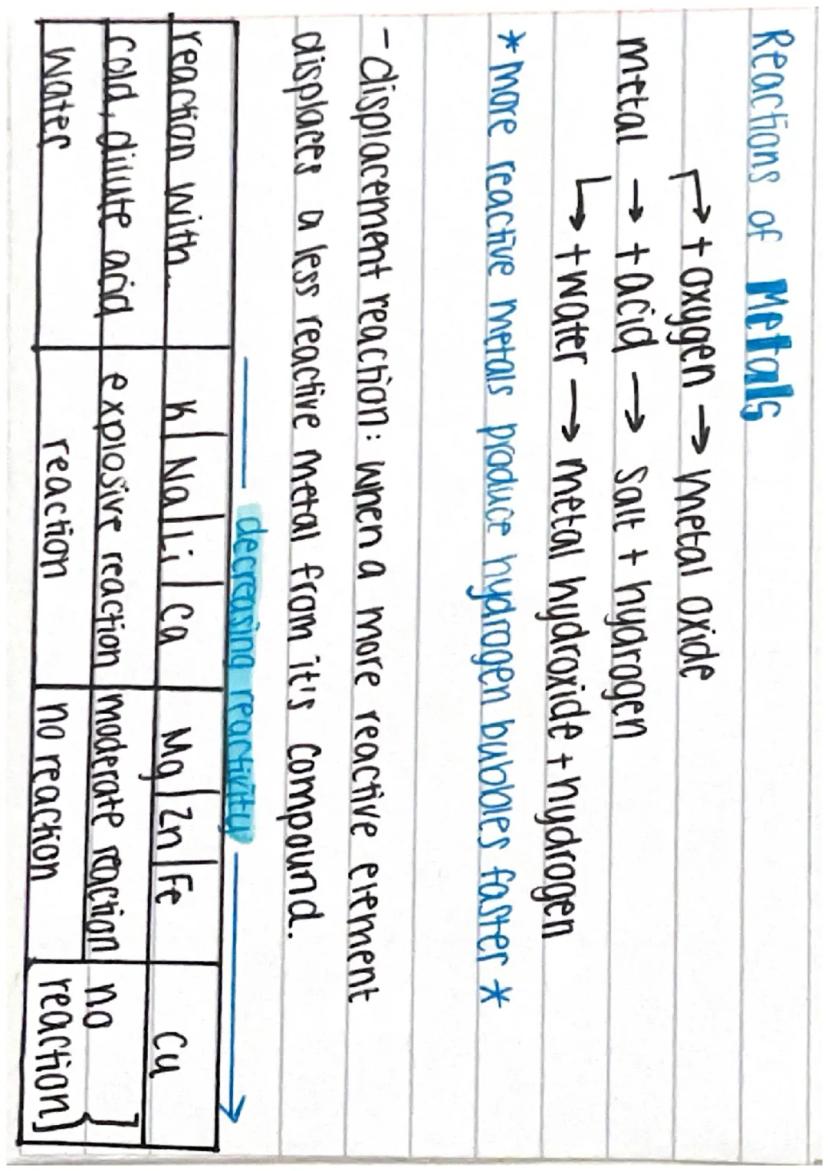 Reactions of Metals
+ oxygen → metal oxide
metal → + acid → salt + hydrogen
+ water → metal hydroxide + hydrogen
* more reactive metals produce hydrogen bubbles faster *
- displacement reaction: when a more reactive element
displaces a less reactive metal from it's compound.
decreasing reactivity
reaction with... K Na Li Ca Mg Zn Fe Cu
cold, dilute acid explosive reaction moderate reaction no
water reaction no reaction reaction